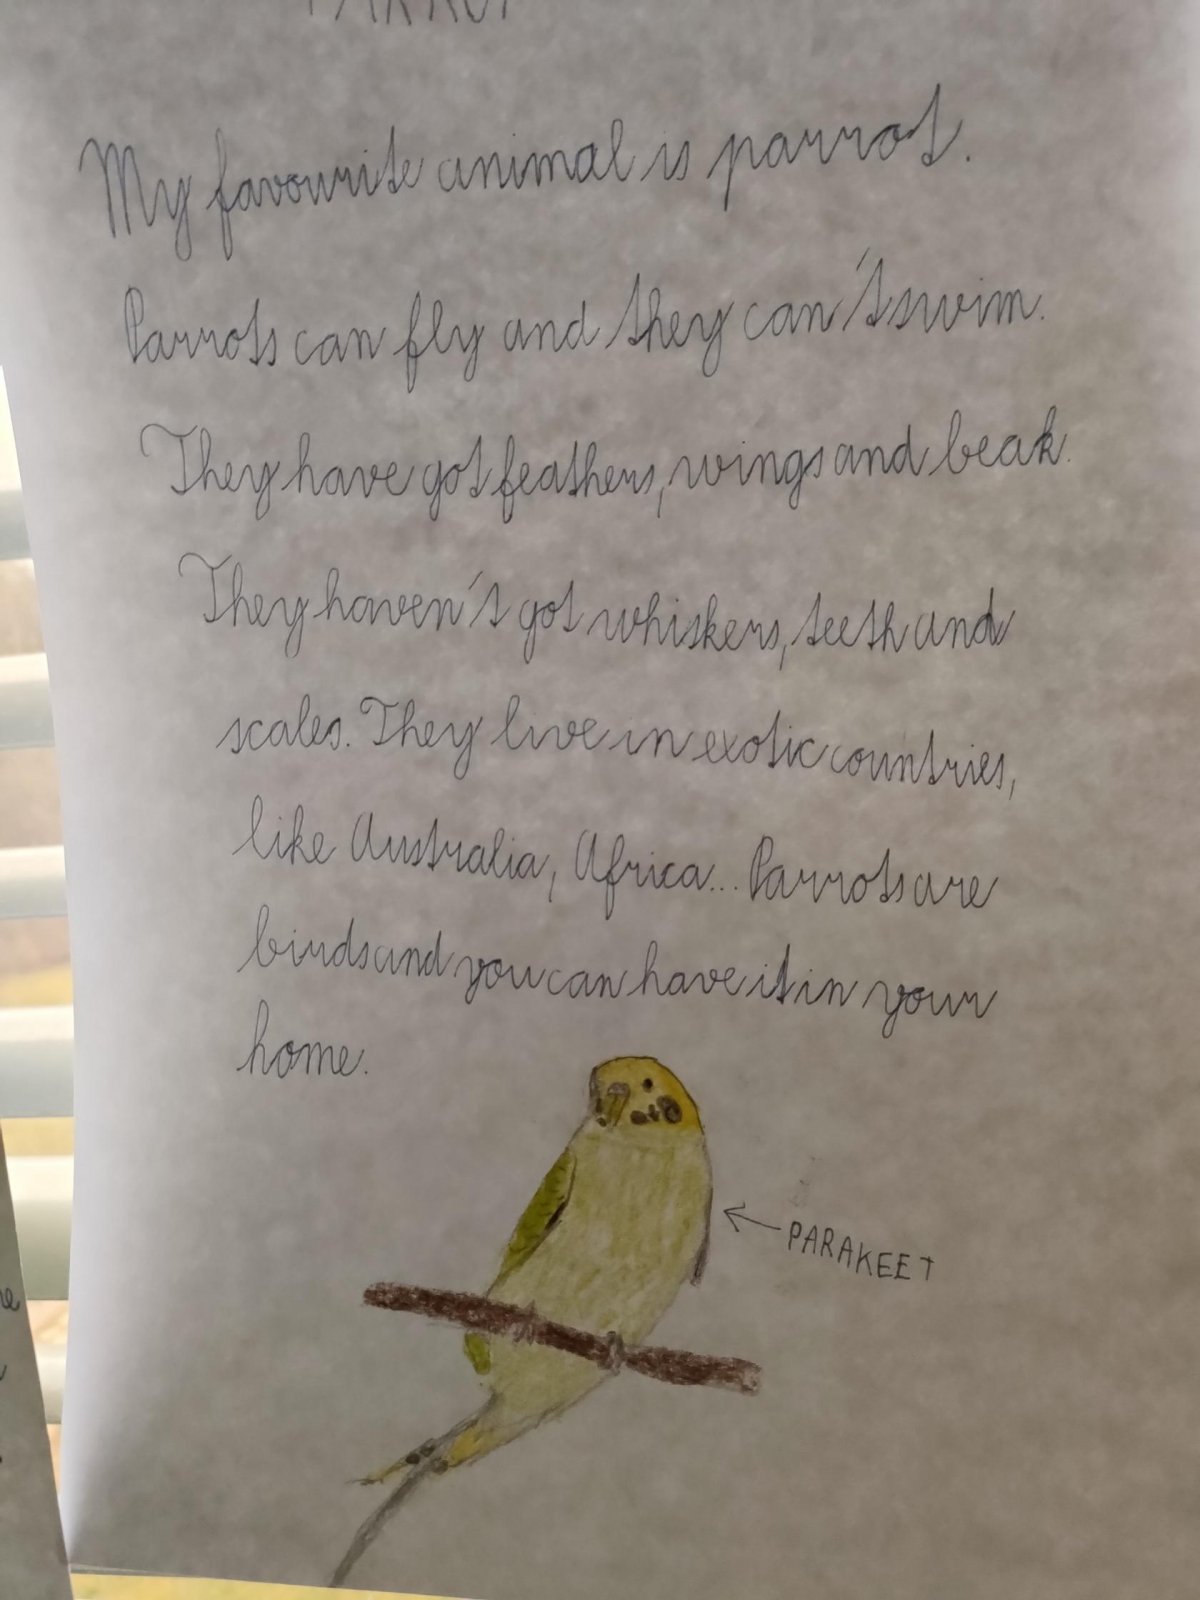 PARROT
My favourite animal is parrot.
Parrots can fly and they can't swim.
They have got feathers, wings and beak.
They haven't got whiskers, teeth and
scales. They live in exotic countries,
like Australia, Africa... Parrots are
birds and you can have it in your
home.
PARAKEET